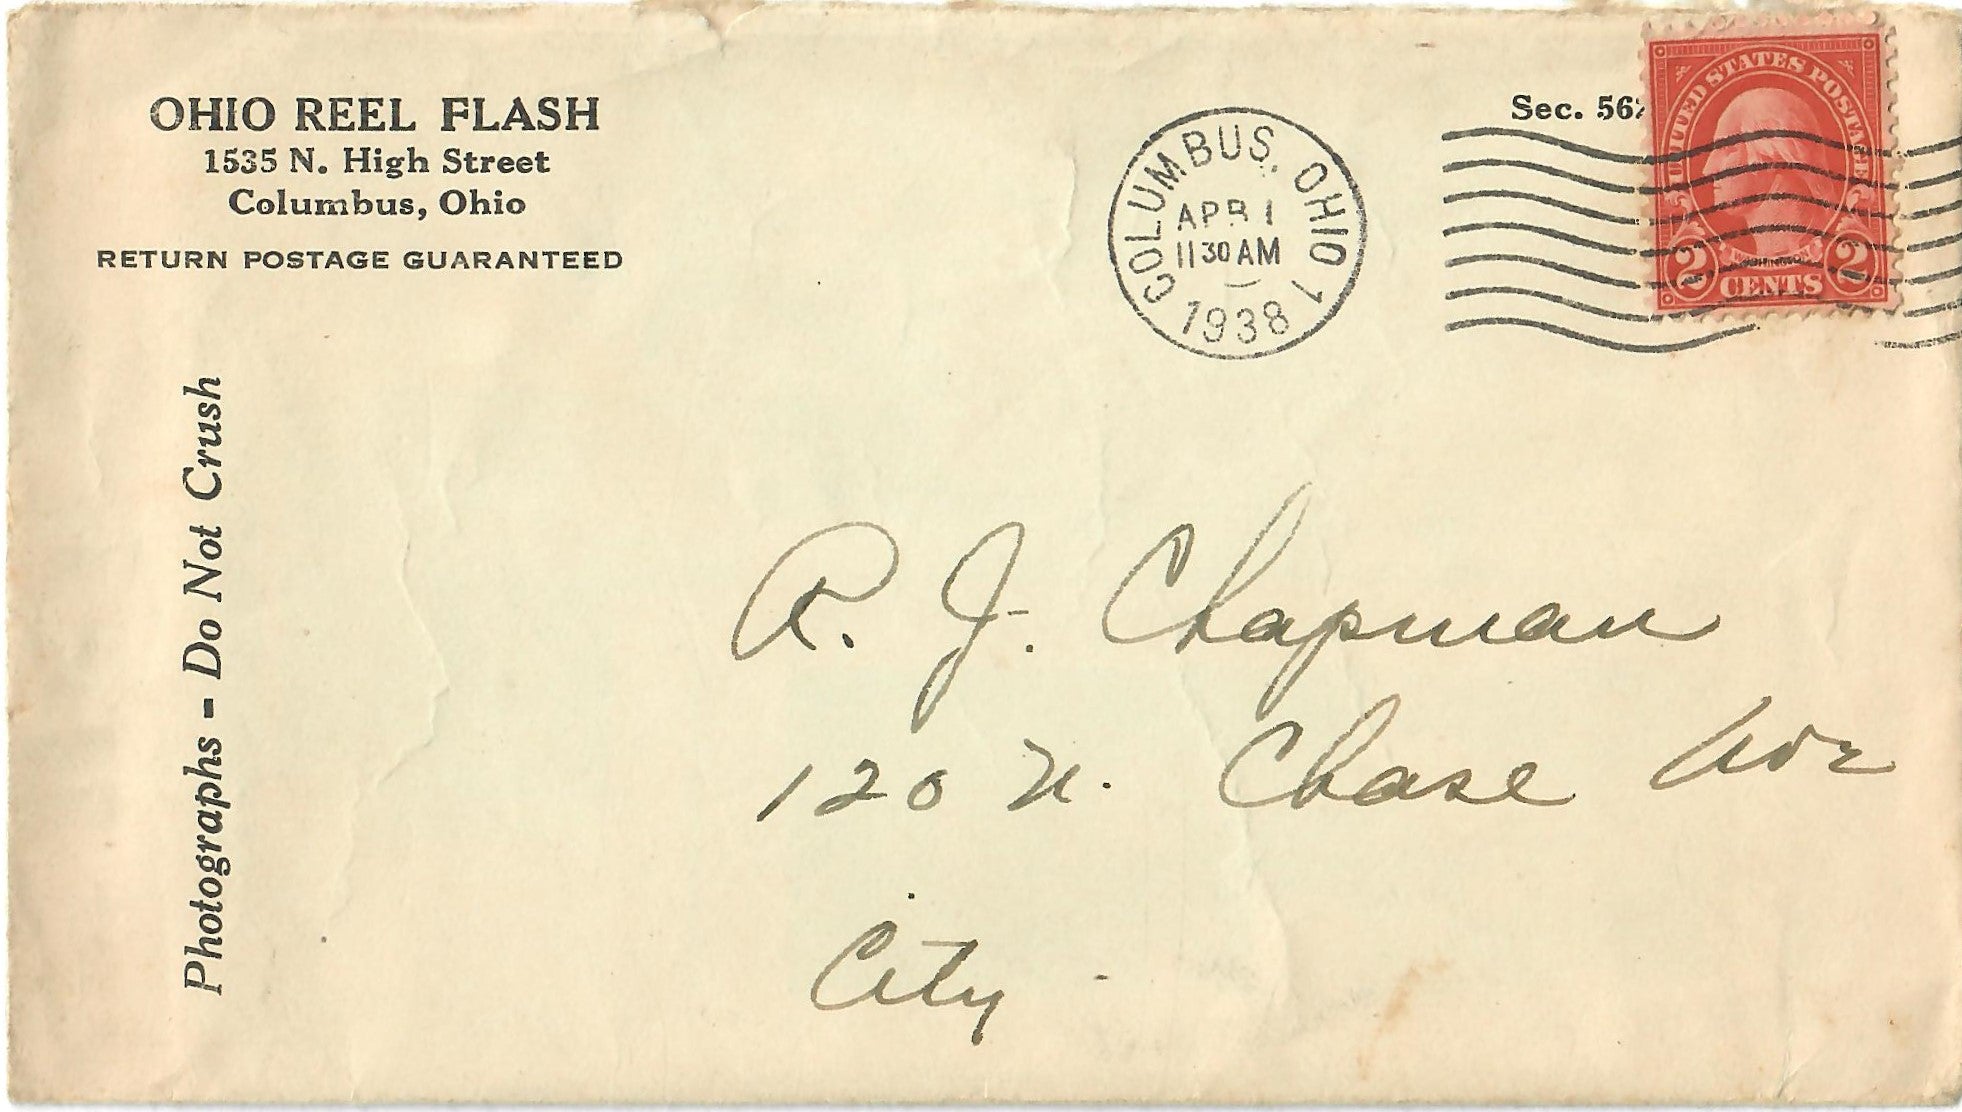 OHIO REEL FLASH
1535 N. High Street
Columbus, Ohio
RETURN POSTAGE GUARANTEED
Photographs - Do Not Crush
COLUMBUS, OHIO 1
APR 1
11 30 AM
1938
Sec. 562
UNITED STATES POSTAGE
WASHINGTON
2 CENTS 2
R. J. Chapman
120 N. Chase Ave
City